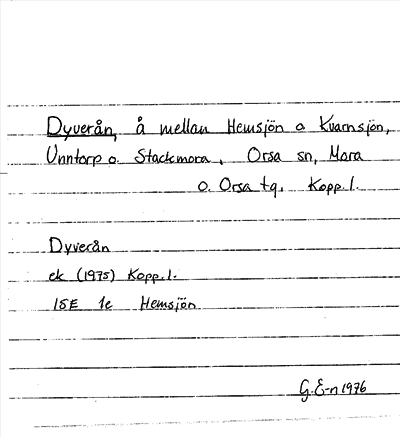 Dyverån, å mellan Hemsjön o Kvarnsjön,
Unntorp o. Stackmora, Orsa sn, Mora
o. Orsa tg, Kopp.l.
Dyverån
ek (1975) Kopp.l.
15E 1e Hemsjön
G.E-n 1976